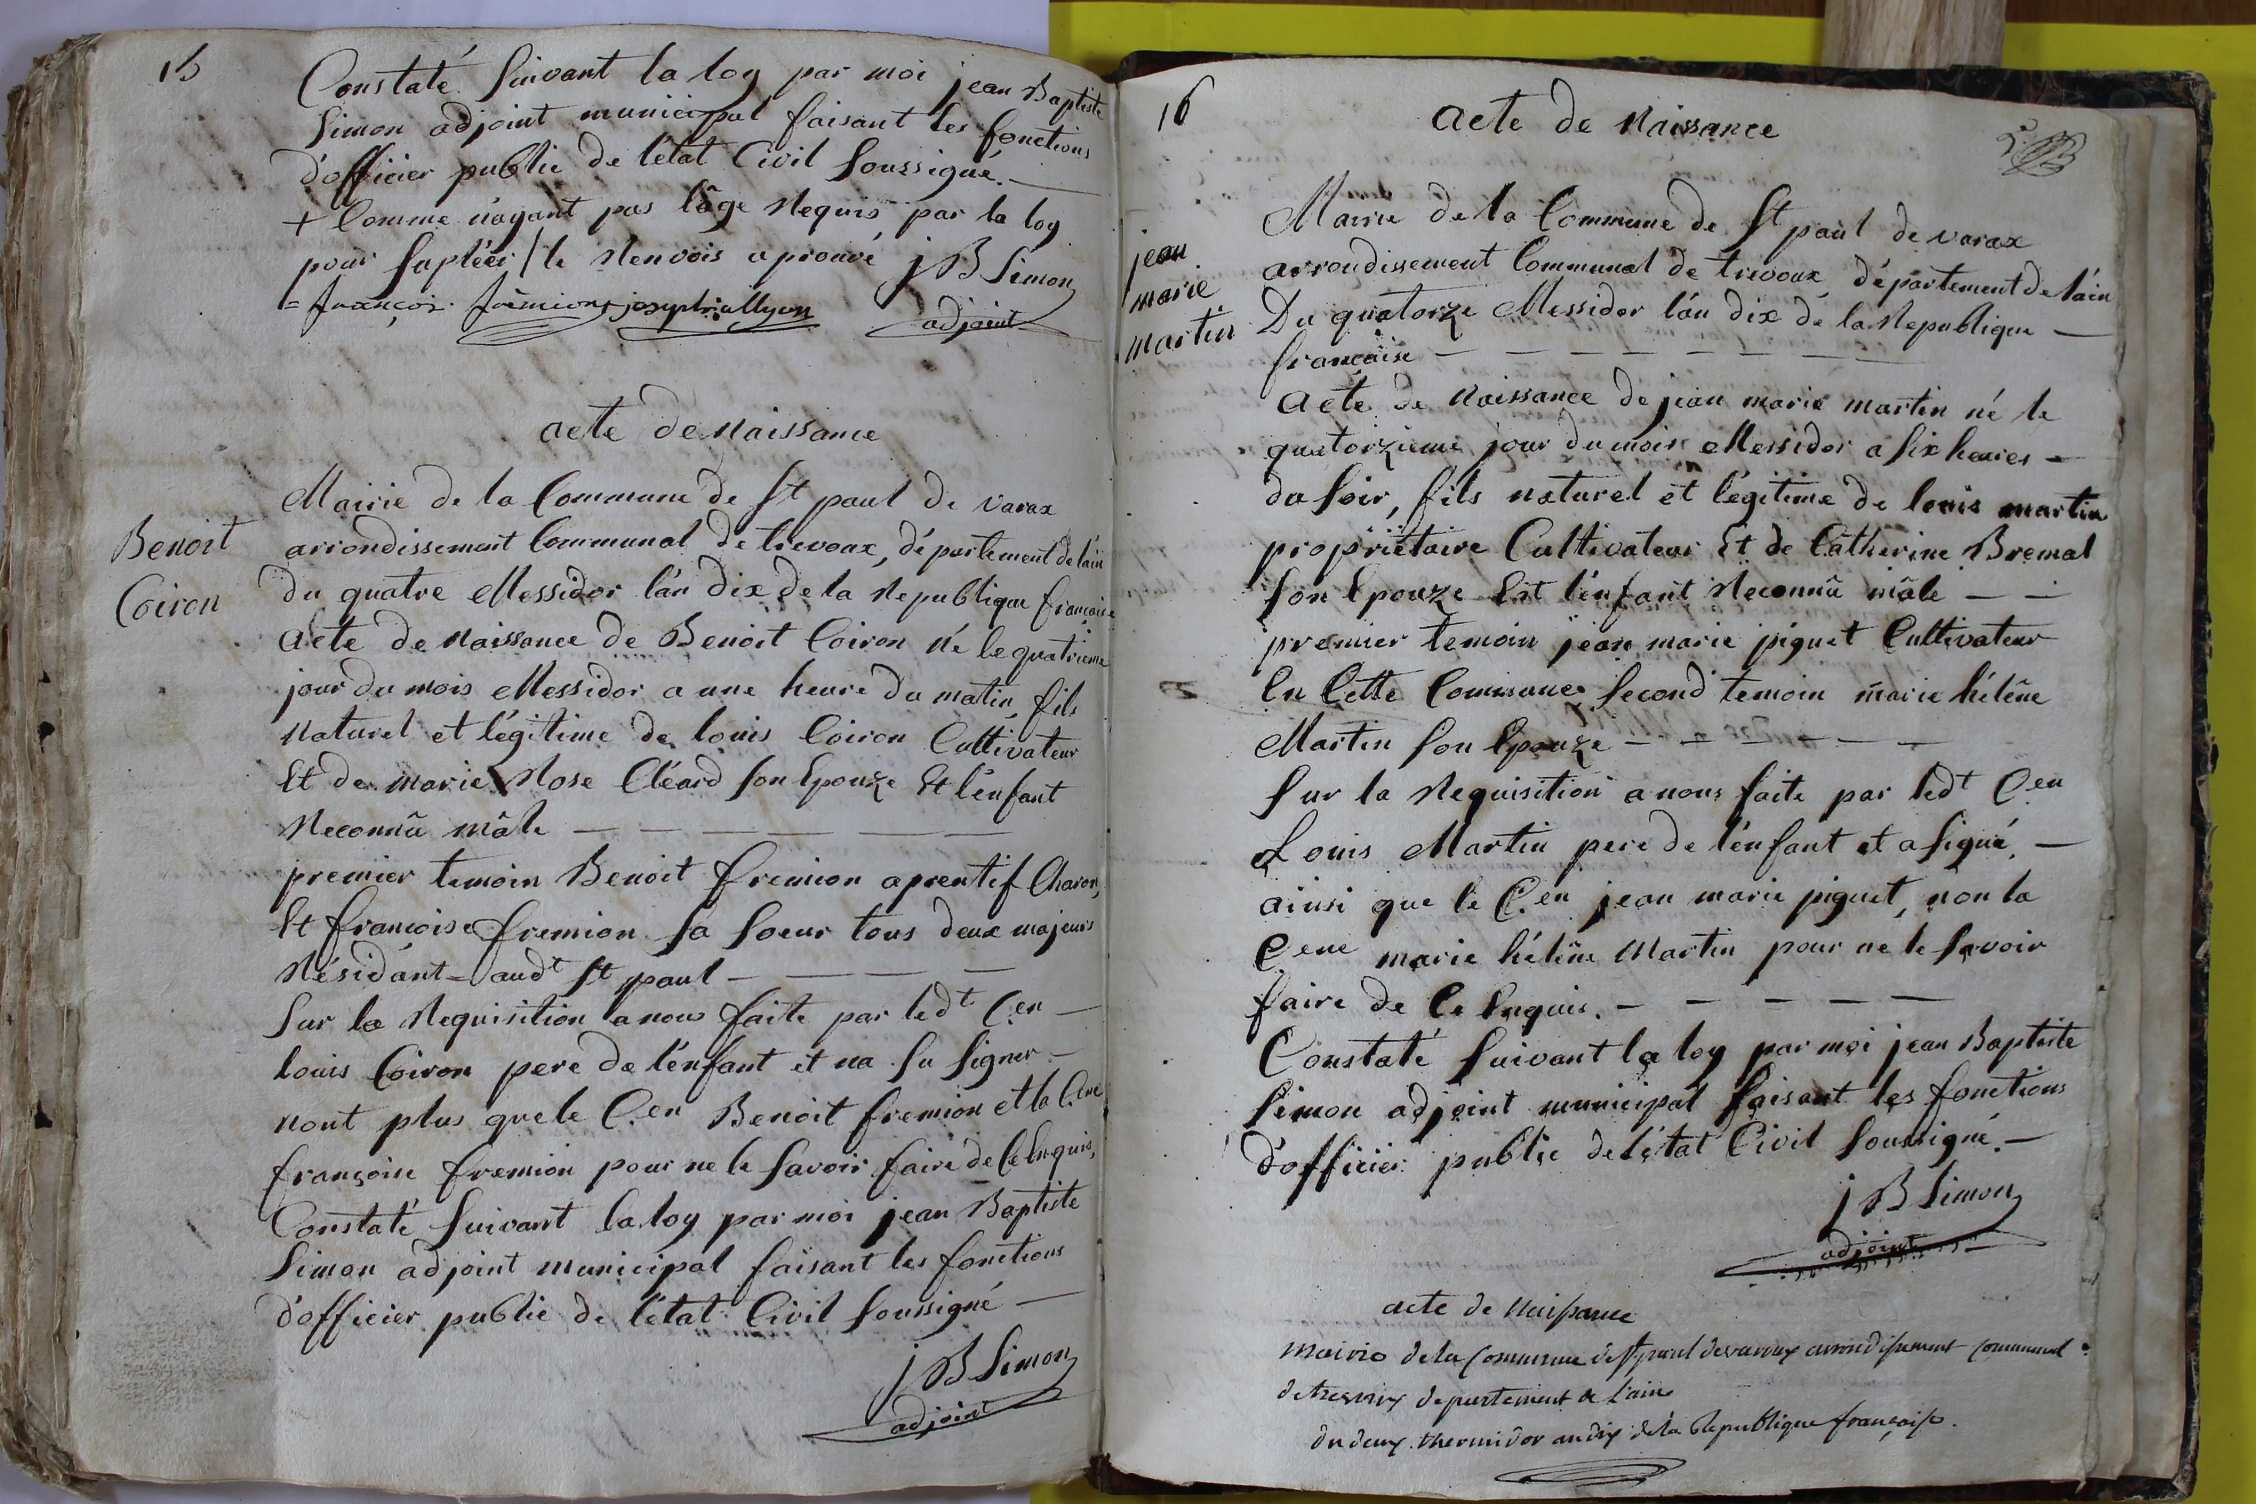 15
Constaté Suivant la loy par moi jean Baptiste
Simon adjoint municipal faisant les fonctions
d'officier public de l'état Civil Soussigné. —
+ Comme n'ayant pas l'âge Requis par la loy
pour Supléer / le Renvois aprouvé J B Simon
= françois fremion joseph
adjoint
acte de Naissance
Benoit
Coiron
Mairie de la Commune de St paul de varax
arrondissement Communal de trevoux, département de l'ain
du quatre Messidor l'an dix de la Republique française
acte de Naissance de Benoit Coiron né le quatrieme
jour du mois Messidor a une heure du matin, fils
Naturel et légitime de louis Coiron Cultivateur
Et de marie Rose Cléard son Epouze Et l'enfant
Reconnû mâle — — — — — —
premier temoin Benoit fremion aprentif Charon,
Et françoise fremion sa soeur tous deux majeurs
Résidant - audt St paul — — — —
Sur la Requisition a nous faite par ledt Cen —
louis Coiron pere de l'enfant et na Su Signer —
nont plus que le Cen Benoit fremion et la Cene
françoise fremion pour ne le Savoir faire de Ce Enquis,
Constaté Suivant la loy par moi jean Baptiste
Simon adjoint municipal faisant les fonctions
d'officier public de l'état Civil Soussigné —
J B Simon
adjoint
16
acte de Naissance
jean
marie
martin
Mairie de la Commune de St paul de varax
arrondissement Communal de trevoux, département de l'ain
Du quatorze Messidor l'an dix de la Republique —
française — — — — — — —
acte de Naissance de jean marie martin né le
quatorzieme jour du mois Messidor a six heures —
du soir, fils naturel et légitime de louis martin
propriétaire Cultivateur Et de Câtherine Bremal
son Epouze Est l'enfant Reconnû mâle — —
premier temoin jean marie piguet Cultivateur
En Cette Commune Second temoin marie hélène
Martin son Epouze — — — — — —
Sur la Requisition a nous faite par ledt Cen
Louis Martin pere de l'enfant et a signé. —
ainsi que le Cen jean marie piguet, non la
Cene marie hélène Martin pour ne le Savoir
faire de Ce Enquis. — — — — —
Constaté Suivant la loy par moi jean Baptiste
Simon adjoint municipal faisant les fonctions
d'officier public de l'état Civil Soussigné. —
J B Simon
adjoint
acte de Naissance
Mairie de la Commune de St paul devaraux arrondissement communal
de trevoux departement de l'ain
du deux thermidor an dix de la Republique française.